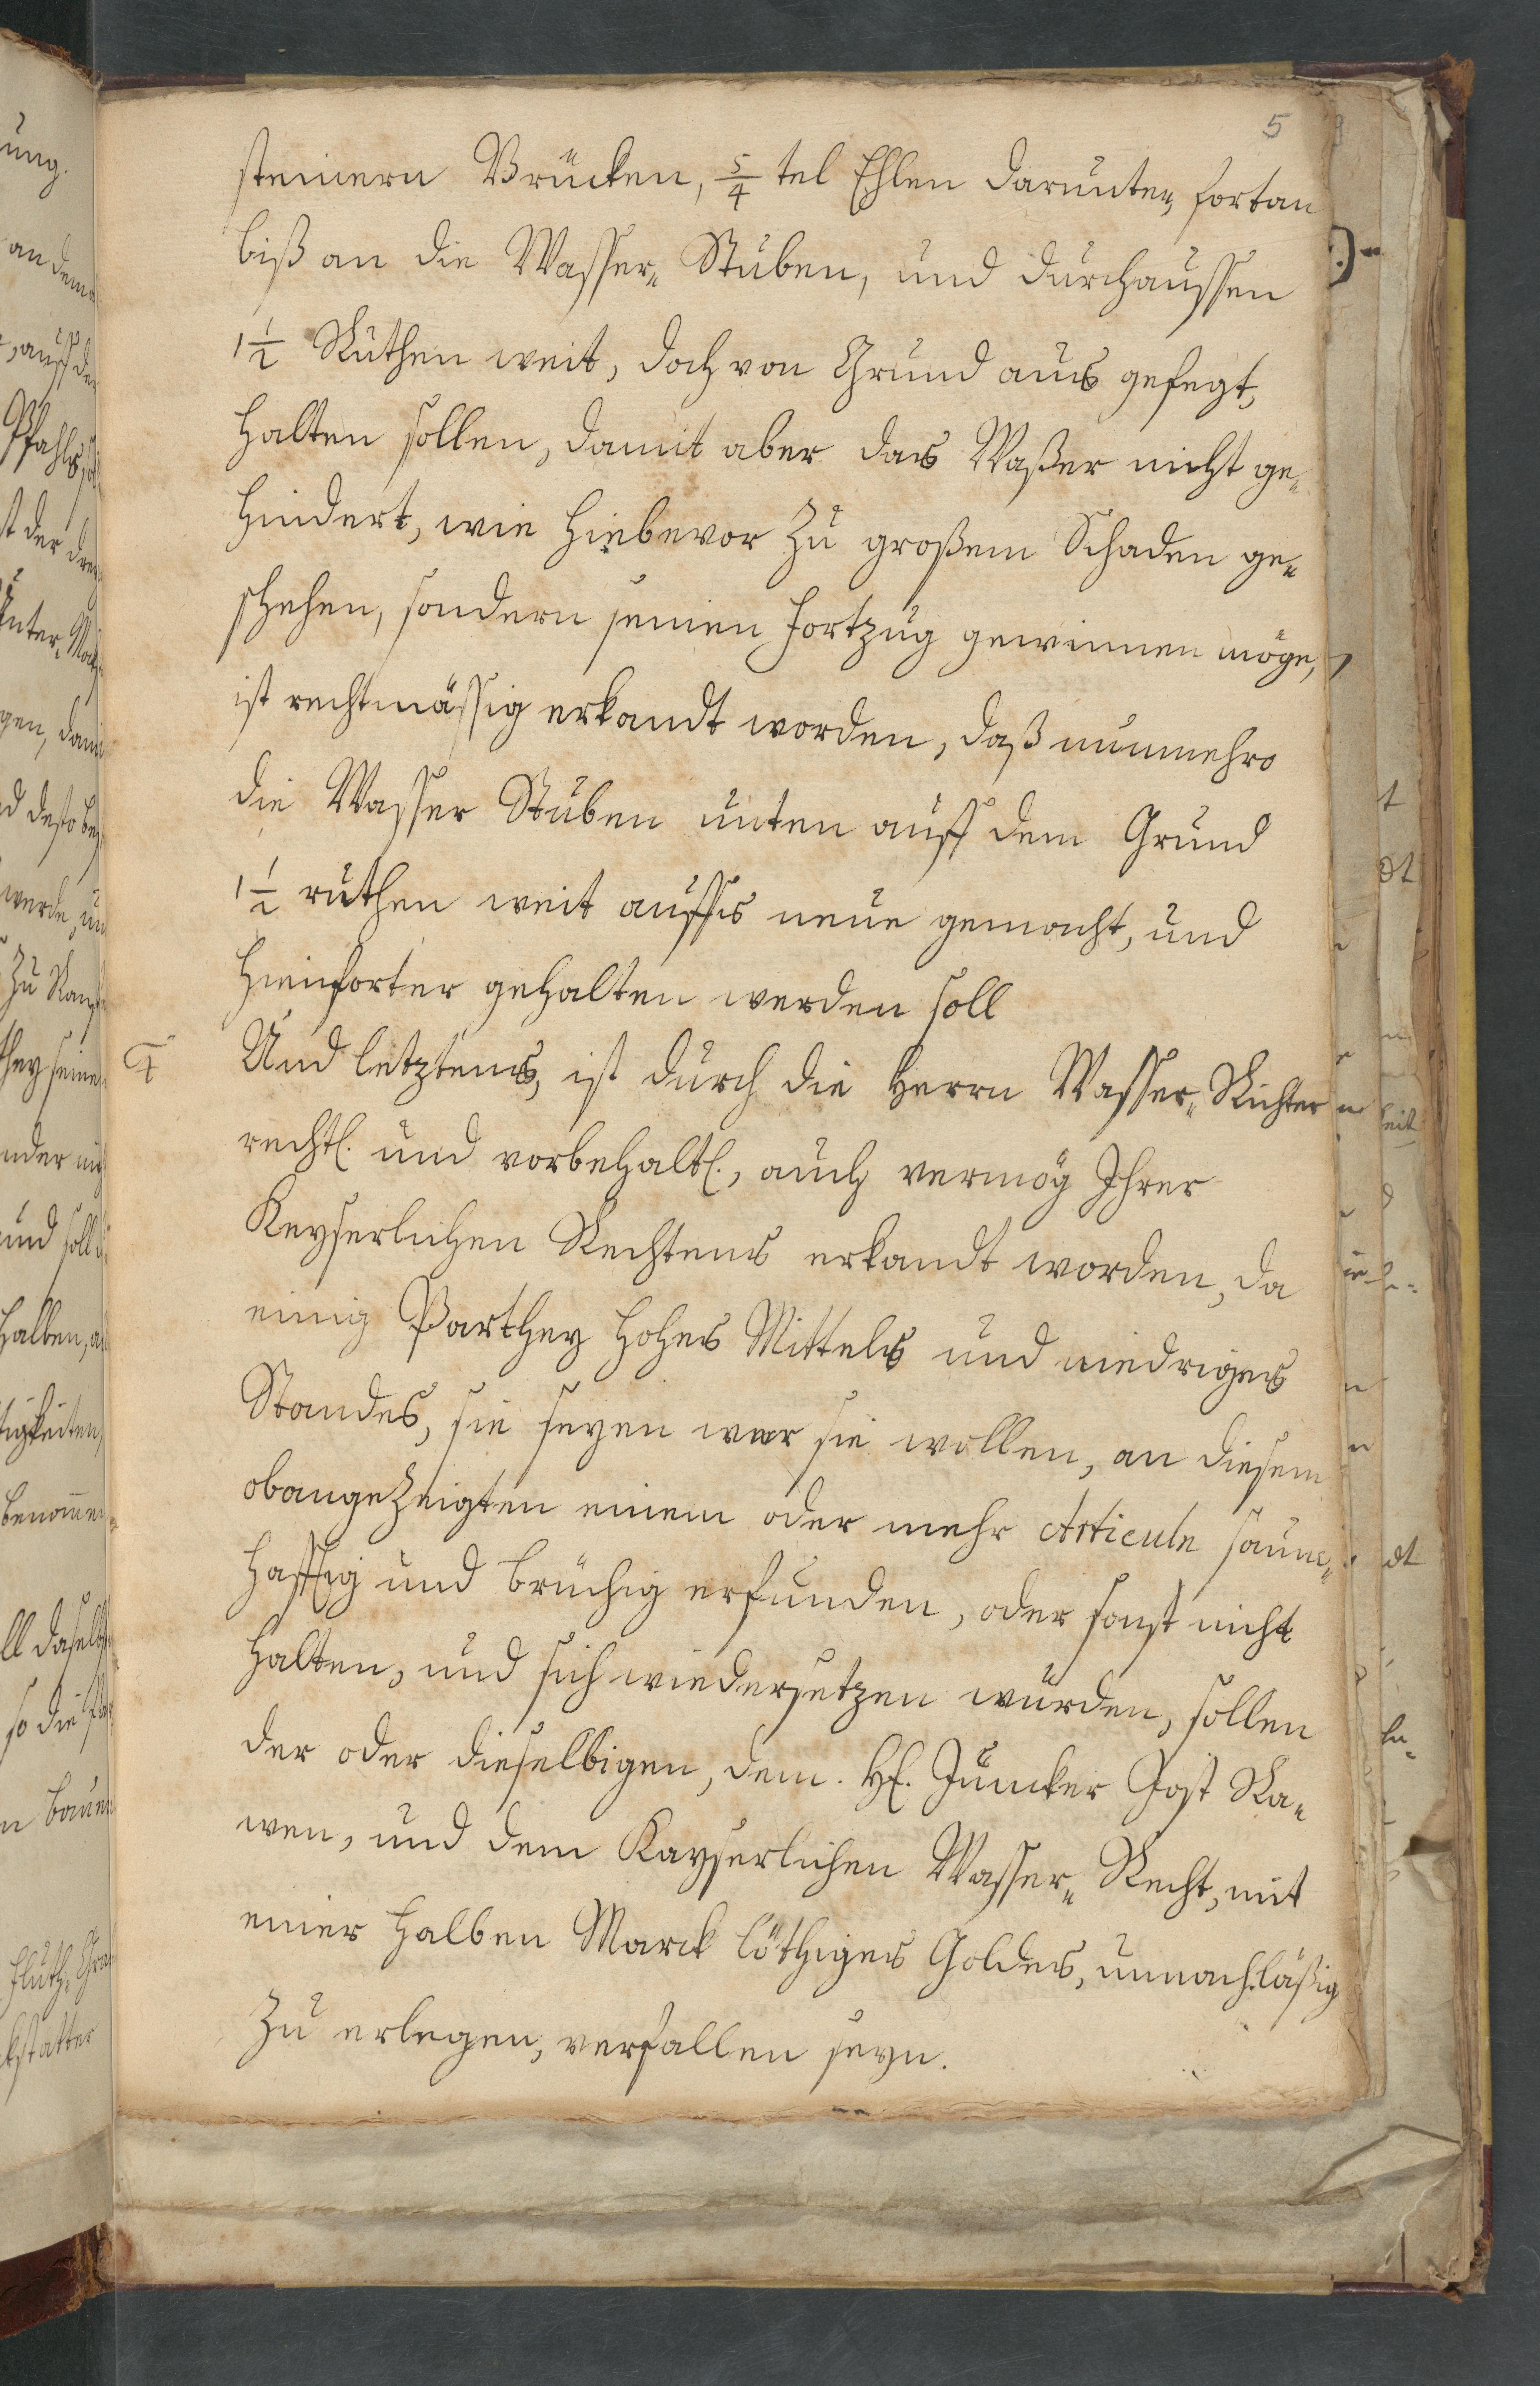 5
steinern Brücken, 5/4 tel Ehlen darunter, fortan
biß an die Wasser- Stuben, und durchaussen
1 1/2 Ruthen weit, doch von Grund aus gefegt,
halten sollen, damit aber das Waßer nicht ge-
hindert, wie hiebevor zu großem Schaden ge-
schehen, sondern seinen Fortzug gewinnen möge,
ist rechtmässig erkandt worden, daß nunmehro
die Wasser Stuben unten auff dem Grund
1 1/2 ruthen weit auffs neue gemacht, und
hinforter gehalten werden soll
Und letztens, ist durch die Herrn Wasser- Richter
rechtl. und vorbehaltl., auch vermög Ihrer
Keyserlichen Rechtens erkandt worden, da
einig Parthey hohes Mittels und niedriges
Standes, sie seyen wer sie wollen, an diesem
obangezeigten einem oder mehr Articuln saum-
hafftig und brüchig erfunden, oder sonst nicht
halten, und sich wiedersetzen würden, sollen
der oder dieselbigen, dem. H. Juncker Jost Ra-
wen, und dem Kayserlichen Wasser- Recht, mit
einer halben Marck löthiges Goldes, unnachläßig
zu erlegen, verfallen seyn.